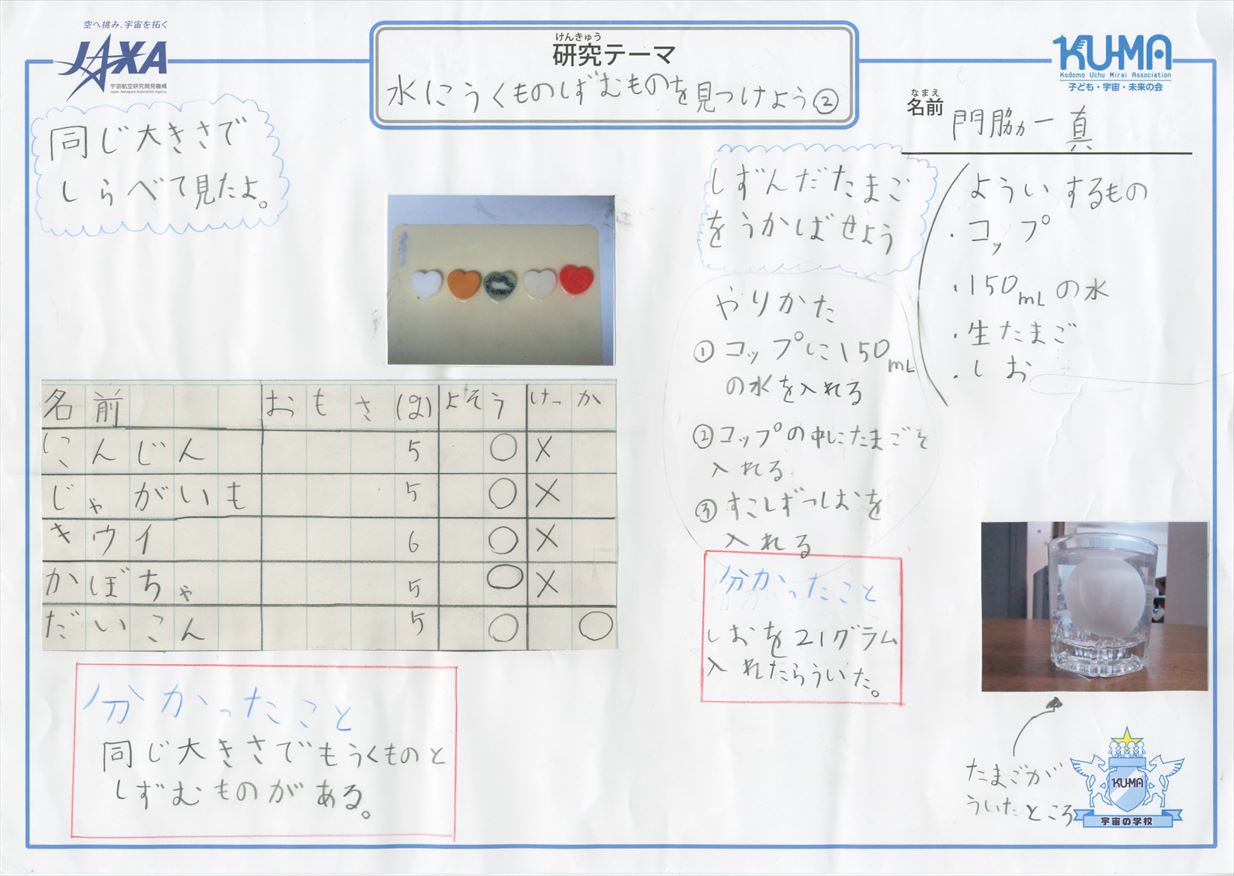 空へ挑み、宇宙を拓く
JAXA
宇宙航空研究開発機構
Japan Aerospace Exploration Agency
けんきゅう
研究テーマ
水にうくものしずむものを見つけよう②
KU-MA
Kodomo Uchu Mirai Association
子ども・宇宙・未来の会
なまえ
名前
門脇カ一真
同じ大きさで
しらべて見たよ。
名前 おもさ(g) よそう けっか
にんじん 5 ○ ×
じゃがいも 5 ○ ×
キウイ 6 ○ ×
かぼちゃ 5 ○ ×
だいこん 5 ○ ○
分かったこと
同じ大きさでもうくものと
しずむものがある。
しずんだたまご
をうかばせよう
やりかた
①コップに150mL
の水を入れる
②コップの中にたまごを
入れる
③すこしずつしおを
入れる
分かったこと
しおを21グラム
入れたらういた。
よういするもの
・コップ
・150mLの水
・生たまご
・しお
たまごが
ういたところ
KUMA
宇宙の学校